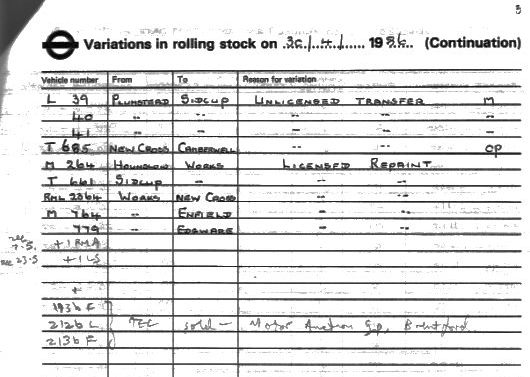 3
Variations in rolling stock on 30/.4./...... 1986. (Continuation)
Vehicle number From To Reason for variation
L 39 PLUMSTEAD SIDCUP UNLICENSED TRANSFER M
40 -- -- -- -- --
41 -- -- -- -- --
T 685 NEW CROSS CAMBERWELL -- -- OP
M 264 HOUNSLOW WORKS LICENSED REPAINT
T 661 SIDCUP -- -- --
RML 2564 WORKS NEW CROSS -- --
M 764 -- ENFIELD -- --
779 -- EDGWARE -- --
7.5. +1 RMA
23.5 +1 LS
+
1936 F
2126 L TEC sold - Motor Auction Gp, Brentford
2136 F